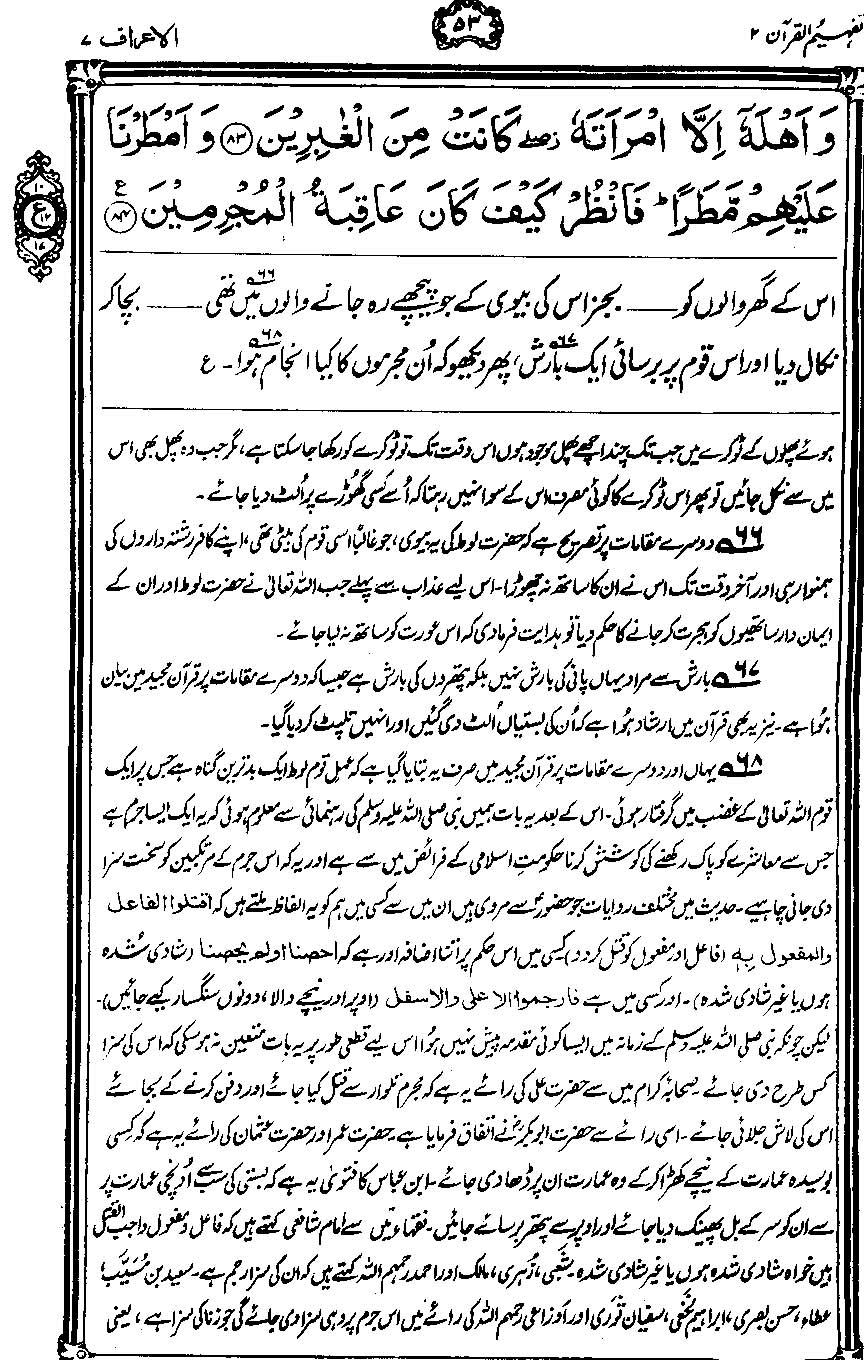 تفہیم القرآن ۲
۵۳
الاعراف ۷
وَاَهْلَهٗٓ اِلَّا امْرَاَتَهٗ ۖ كَانَتْ مِنَ الْغٰبِرِيْنَ ﴿۸۳﴾ وَاَمْطَرْنَا
عَلَيْهِمْ مَّطَرًا ؕ فَانْظُرْ كَيْفَ كَانَ عَاقِبَةُ الْمُجْرِمِيْنَ ﴿۸۴﴾ ع
۱۰
ع
۱۷
اس کے گھر والوں کو ـــــ بجز اس کی بیوی کے جو پیچھے رہ جانے والوں میں تھی۶۶ ـــــ بچا کر
نکال دیا اور اس قوم پر برسائی ایک بارش۶۷، پھر دیکھو کہ اُن مجرموں کا کیا انجام ہوا۶۸۔ ع
ہوئے پھلوں کے ٹوکرے میں جب تک چند اچھے پھل موجود ہوں اس وقت تک تو ٹوکرے کو رکھا جا سکتا ہے، مگر جب وہ پھل بھی اس
میں سے نکل جائیں تو پھر اس ٹوکرے کا کوئی مصرف اس کے سوا نہیں رہتا کہ اُسے کسی گھُوڑے پر اُلٹ دیا جائے۔
۶۶ دوسرے مقامات پر تصریح ہے کہ حضرت لوط کی یہ بیوی، جو غالباً اسی قوم کی بیٹی تھی، اپنے کافر رشتہ داروں کی
ہمنوا رہی اور آخر وقت تک اس نے ان کا ساتھ نہ چھوڑا۔ اس لیے عذاب سے پہلے جب اللہ تعالیٰ نے حضرت لوط اور ان کے
ایمان دار ساتھیوں کو ہجرت کر جانے کا حکم دیا تو ہدایت فرما دی کہ اس عورت کو ساتھ نہ لیا جائے۔
۶۷ بارش سے مراد یہاں پانی کی بارش نہیں بلکہ پتھروں کی بارش ہے جیسا کہ دوسرے مقامات پر قرآن مجید میں بیان
ہوا ہے۔ نیز یہ بھی قرآن میں ارشاد ہوا ہے کہ اُن کی بستیاں اُلٹ دی گئیں اور انہیں تلپٹ کر دیا گیا۔
۶۸ یہاں اور دوسرے مقامات پر قرآن مجید میں صرف یہ بتایا گیا ہے کہ عمل قوم لوط ایک بدترین گناہ ہے جس پر ایک
قوم اللہ تعالیٰ کے غضب میں گرفتار ہوئی۔ اس کے بعد یہ بات ہمیں نبی صلی اللہ علیہ وسلم کی رہنمائی سے معلوم ہوئی کہ یہ ایک ایسا جرم ہے
جس سے معاشرے کو پاک رکھنے کی کوشش کرنا حکومتِ اسلامی کے فرائض میں سے ہے اور یہ کہ اس جرم کے مرتکبین کو سخت سزا
دی جانی چاہیے۔ حدیث میں مختلف روایات جو حضورؐ سے مروی ہیں ان میں سے کسی میں ہم کو یہ الفاظ ملتے ہیں کہ اقتلوا الفاعل
والمفعول بہٖ (فاعل اور مفعول کو قتل کر دو) کسی میں اس حکم پر اتنا اضافہ اور ہے کہ احصنا او لم یحصنا (شادی شدہ
ہوں یا غیر شادی شدہ)۔ اور کسی میں ہے فارجموا الاعلیٰ والاسفل (اوپر اور نیچے والا، دونوں سنگسار کیے جائیں)۔
لیکن چونکہ نبی صلی اللہ علیہ وسلم کے زمانہ میں ایسا کوئی مقدمہ پیش نہیں ہوا اس لیے قطعی طور پر یہ بات متعین نہ ہو سکی کہ اس کی سزا
کس طرح دی جائے۔ صحابۂ کرام میں سے حضرت علی کی رائے یہ ہے کہ مجرم تلوار سے قتل کیا جائے اور دفن کرنے کے بجائے
اس کی لاش جلائی جائے۔ اسی رائے سے حضرت ابوبکرؓ نے اتفاق فرمایا ہے۔ حضرت عمر اور حضرت عثمان کی رائے یہ ہے کہ کسی
بوسیدہ عمارت کے نیچے کھڑا کر کے وہ عمارت ان پر ڈھا دی جائے۔ ابن عباس کا فتویٰ یہ ہے کہ بستی کی سب سے اُونچی عمارت پر
سے ان کو سر کے بل پھینک دیا جائے اور اوپر سے پتھر برسائے جائیں۔ فقہاء میں سے امام شافعی کہتے ہیں کہ فاعل و مفعول واجب القتل
ہیں خواہ شادی شدہ ہوں یا غیر شادی شدہ۔ شعبی، زُہری، مالک اور احمد رحمہم اللہ کہتے ہیں کہ ان کی سزا رجم ہے۔ سعید بن مُسَیَّب،
عطاء، حسن بصری، ابراہیم نخعی، سفیان ثوری اور اوزاعی رحمہم اللہ کی رائے میں اس جرم پر وہی سزا دی جائے گی جو زنا کی سزا ہے، یعنی